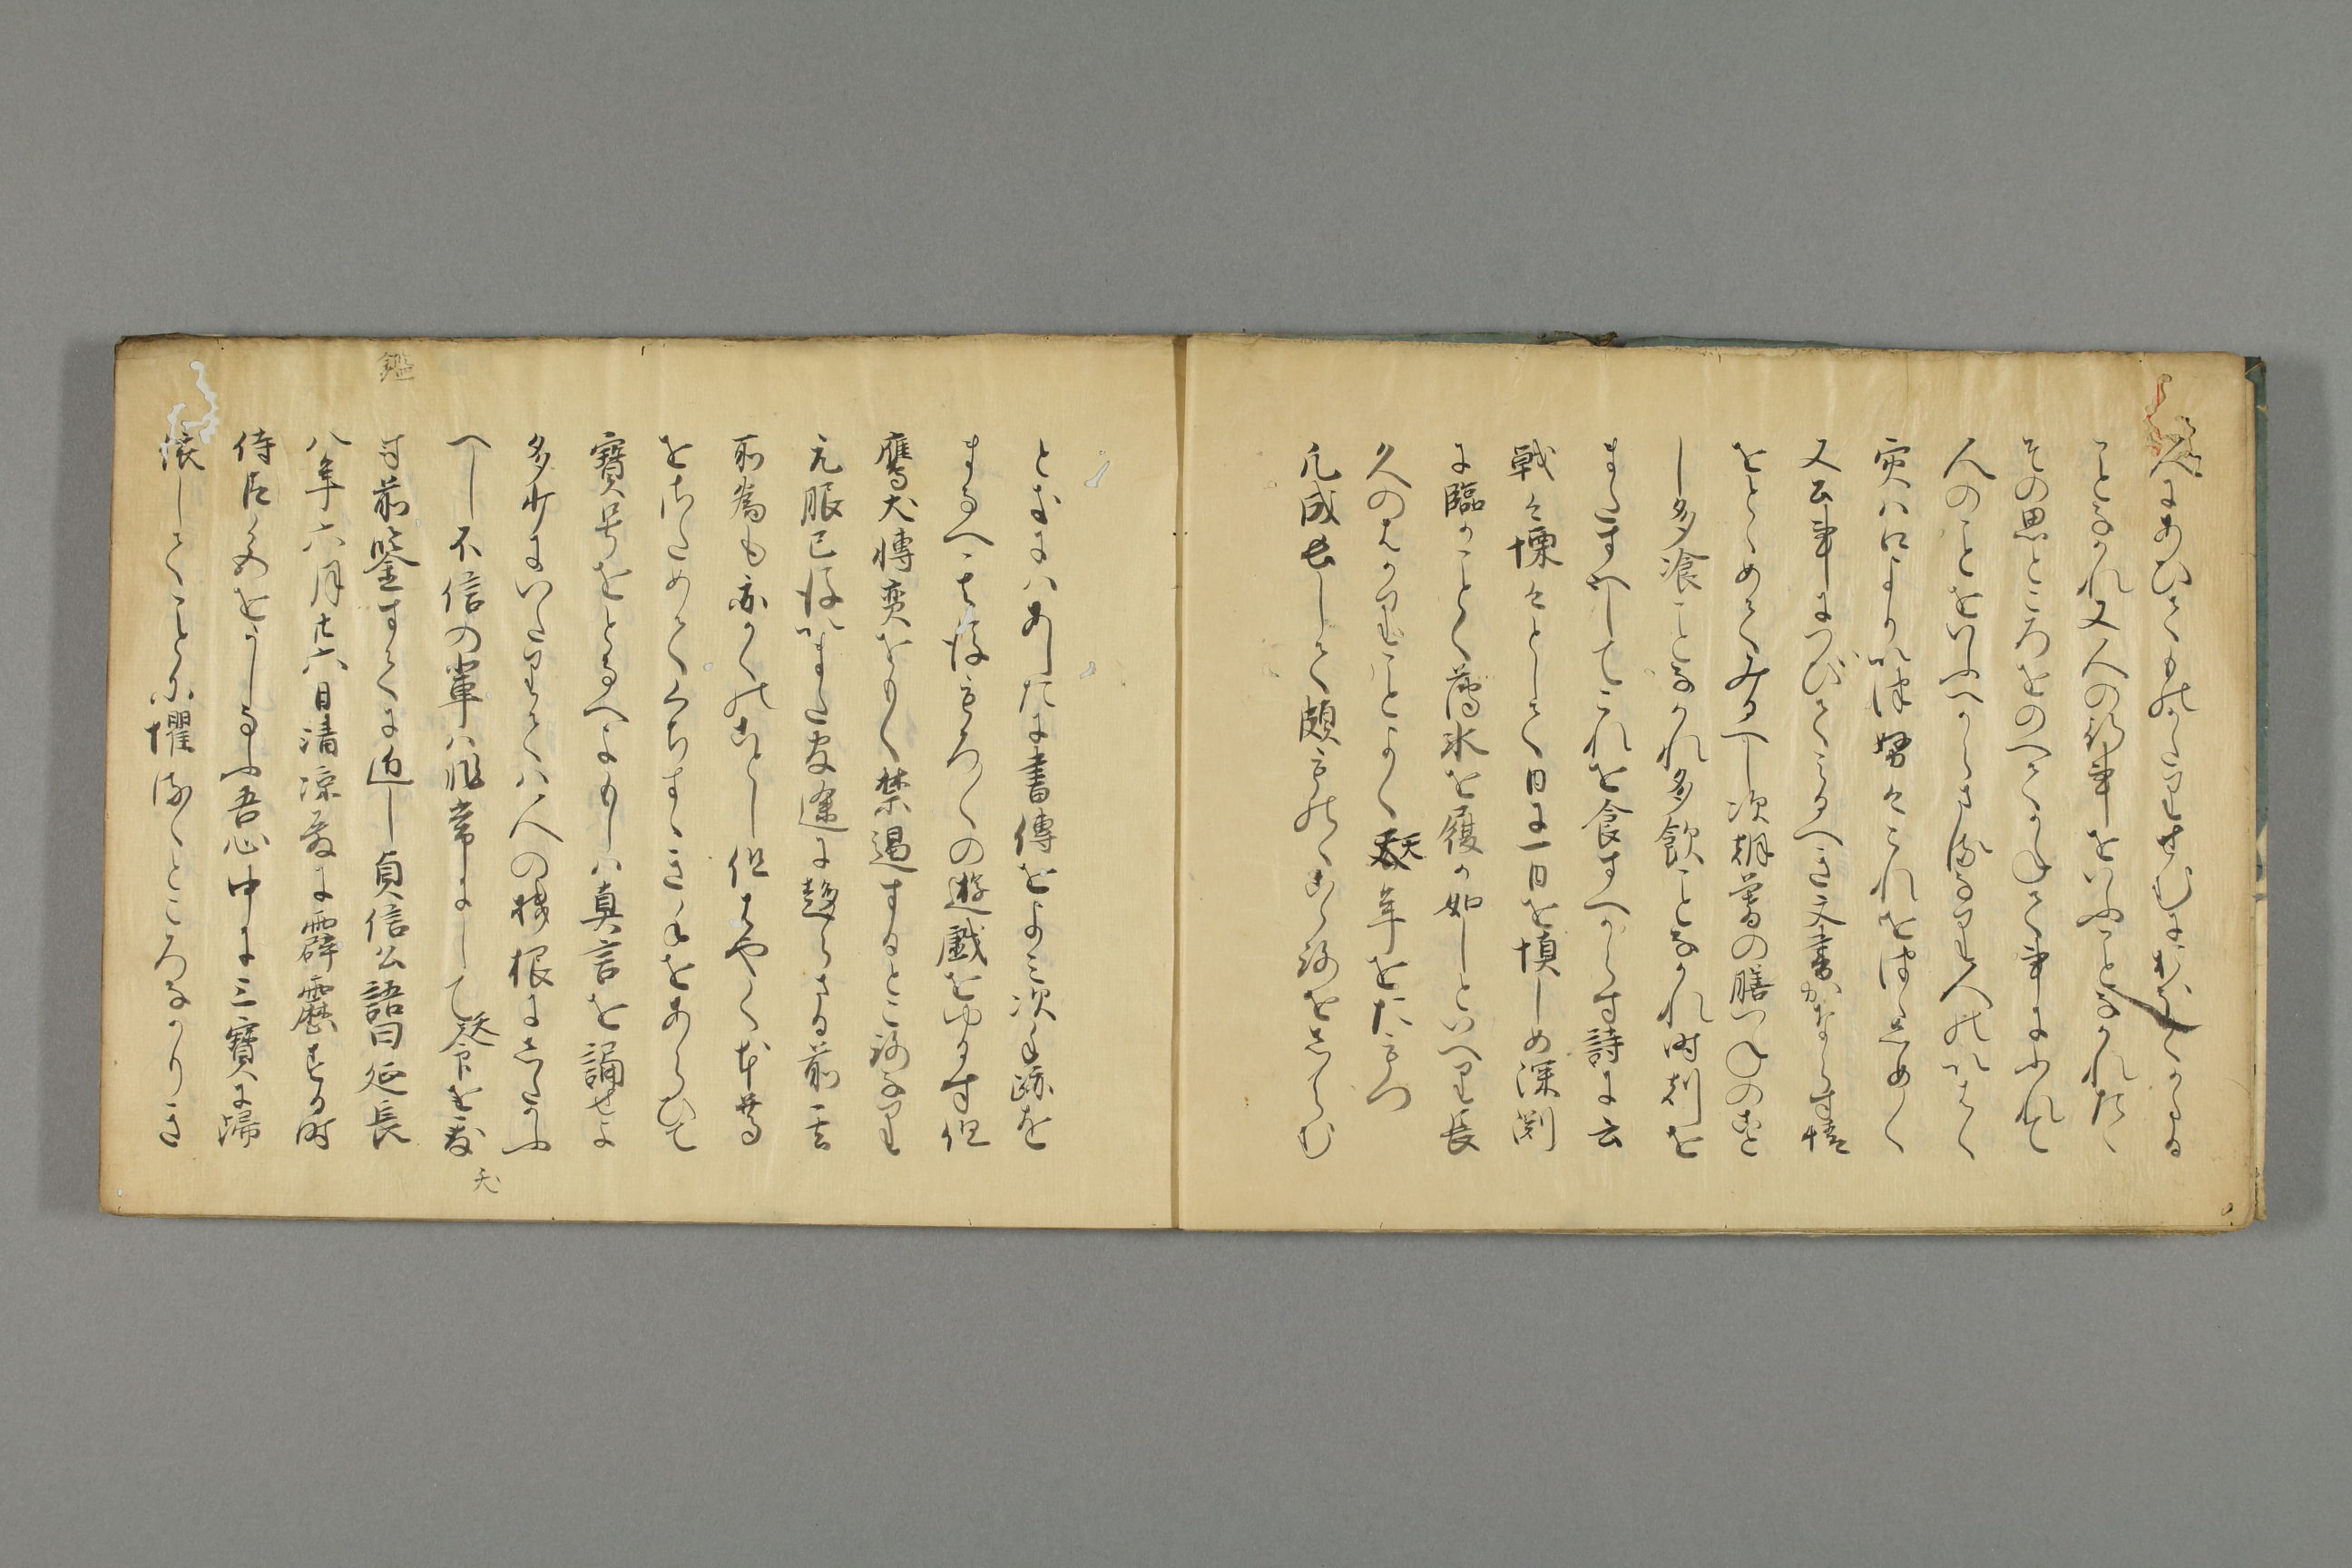 人にあひてものかたりせむにおほくかたる
ことなかれ又人の行事をいふことなかれたゝ
その思ところをのへてかねて事にふれて
人のことをいふへからさるなり人のわさはひ
灾は口よりおこる努々これをつゝしめ
又公事につひてみるへき文書かならす情
をとゝめてみるへし次朝暮の膳つねのこと
し多飡ことなかれ多飲ことなかれ時剋を
またすしてこれを食すへからす詩に云
戦々慄々として日に一日を慎しめ深渕
に臨かことく薄氷を履か如しといへり長
久のはかりことよく夭年をたもつ
凡成長して頗ものゝこゝろをしらむ
ときにはあしたに書傳をよみ次手跡を
まなへ其後もろ〱の遊戯をゆるす但
鷹犬博奕をもく禁遏するところなり
元服已後いまた官途に趍らさる前其
所為も亦かくのことし但はやく本尊
をさためてくちすゝきてをあらひて
寶号をとなへよもしは真言を誦せよ
多少にいたりては人の機根にしたかふ
へし不信の輩は非常にして夭命を致
夭
鑑
寸前鑒すてに近し貞信公語曰延長
八年六月廿六日清涼殿に霹靂する時
侍臣色をうしなふ吾心中に三寶に帰
依してことに懼るゝところなかりき